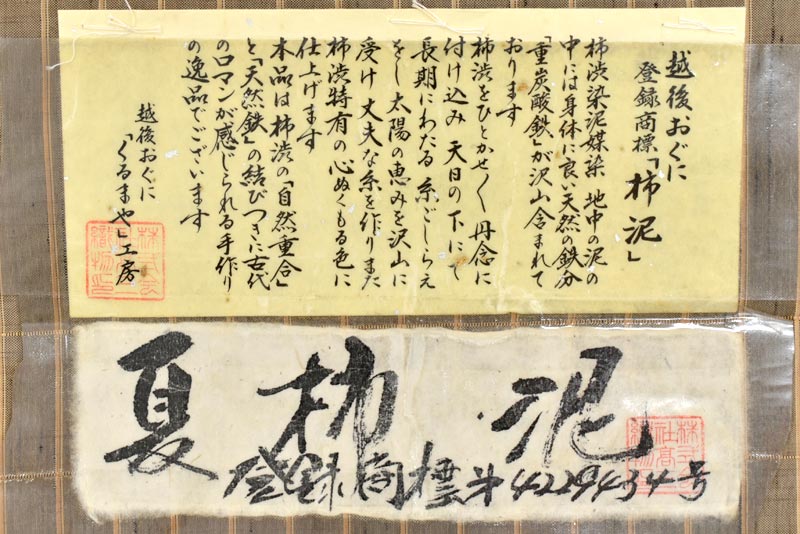 越後おぐに
登録商標「柿泥」
柿渋染泥媒染 地中の泥の
中には身体に良い天然の鉄分
「重炭酸鉄」が沢山含まれて
おります
柿渋をひとかせ〱 丹念に
付け込み 天日の下にて
長期にわたる 糸ごしらえ
をし 太陽の恵みを沢山に
受け 丈夫な糸を作りまた
柿渋特有の心ぬくもる色に
仕上げます
本品は柿渋の「自然重合」
と「天然鉄」の結びつきに古代
のロマンが感じられる手作り
の逸品でございます
越後おぐに
「くるまや」工房
夏 柿 泥
登録商標第4229434号